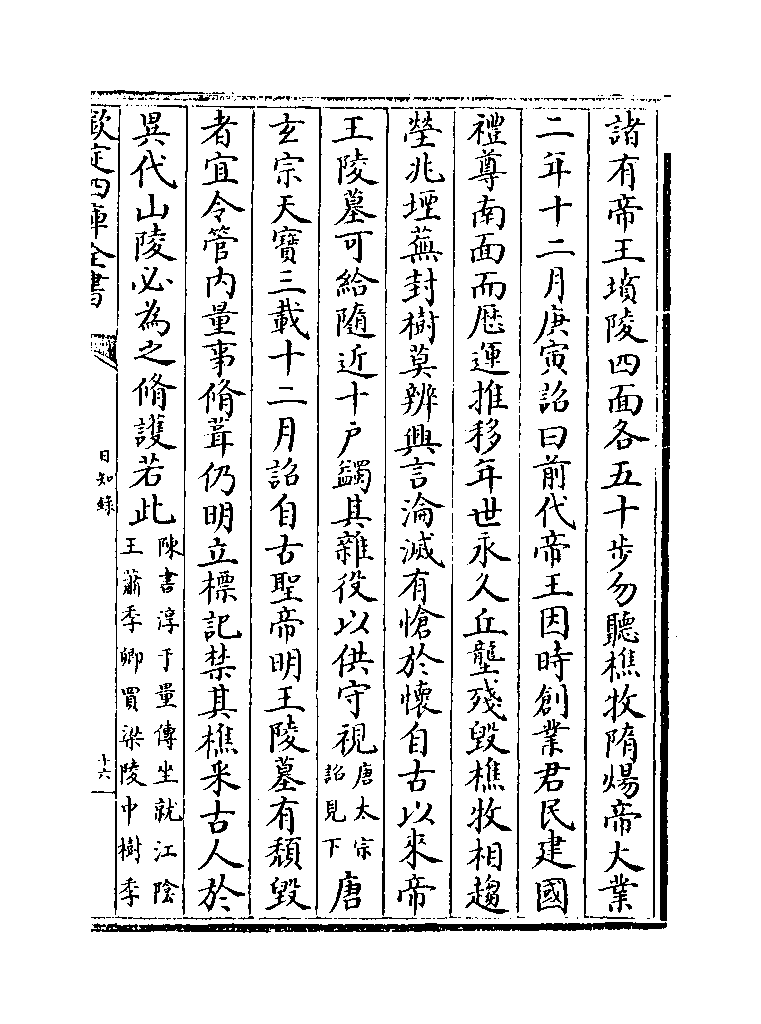 諸有帝王墳陵四面各五十步勿聽樵牧隋煬帝大業
二年十二月庚寅詔曰前代帝王因時創業君民建國
禮尊南面而厯運推移年世永久丘壟殘毀樵牧相趨
塋兆堙蕪封樹莫辨興言淪滅有愴於懷自古以來帝
王陵墓可給隨近十户蠲其雜役以供守視唐太宗詔見下唐
玄宗天寶三載十二月詔自古聖帝明王陵墓有頽毀
者宜令管内量事脩葺仍明立標記禁其樵采古人於
異代山陵必為之脩護若此陳書淳于量傳坐就江陰王蕭季卿買梁陵中樹季
欽定四庫全書
日知錄
十六